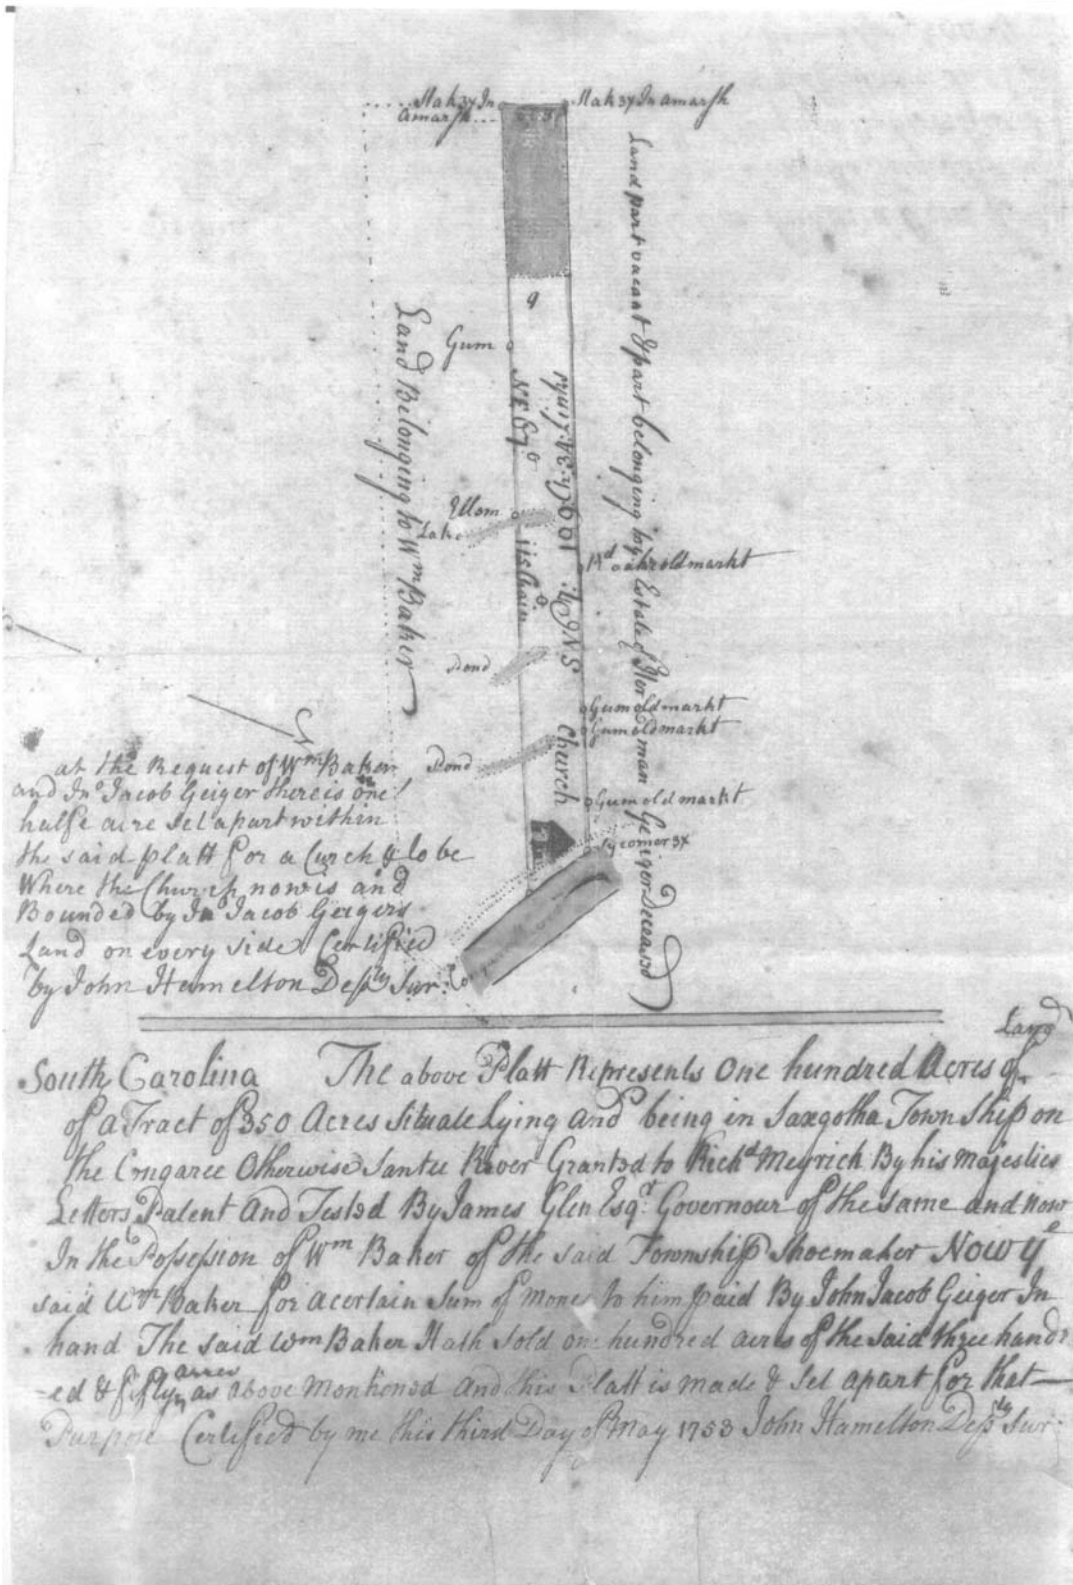 Stak 3x In
amarsh
Stak 3x In amarsh
Land part vacant & part belonging to ye Estate of Herman Geiger Deceasd
Land Belonging to Wm Baker
9
Gum
NE 67°
Ellom
Lake
Rd oak old markt
Pond
Gum old markt
Gum old markt
Church
Pond
Gum old markt
Sycomer 3x
at the Request of Wm Baker
and Jno Jacob Geiger there is one
halfe acre set apart within
the said platt for a Curch & to be
Where the Church now is and
Bounded by Jno Jacob Geigers
Land on every side Certified
by John Hamelton Depty Sur:
Land
South Carolina The above Platt Represents One hundred Acres of
of a Tract of 350 Acres Situate Lying and being in Saxgotha Township on
the Congaree Otherwise Santee River Granted to Richd Meyrich By his Majesties
Letters Patent And Tested By James Glen Esqr. Governour of the same and now
In the Possession of Wm Baker of the said Township Shoemaker Now ye
said Wm Baker for a certain Sum of Money to him paid By John Jacob Geiger In
hand The said Wm Baker Hath Sold one hundred acres of the said three hundr
-ed & fifty acres as above Mentioned And this Platt is made & Set apart for that
Purpose Certified by me this third Day of May 1753 John Hamelton Depty Sur: